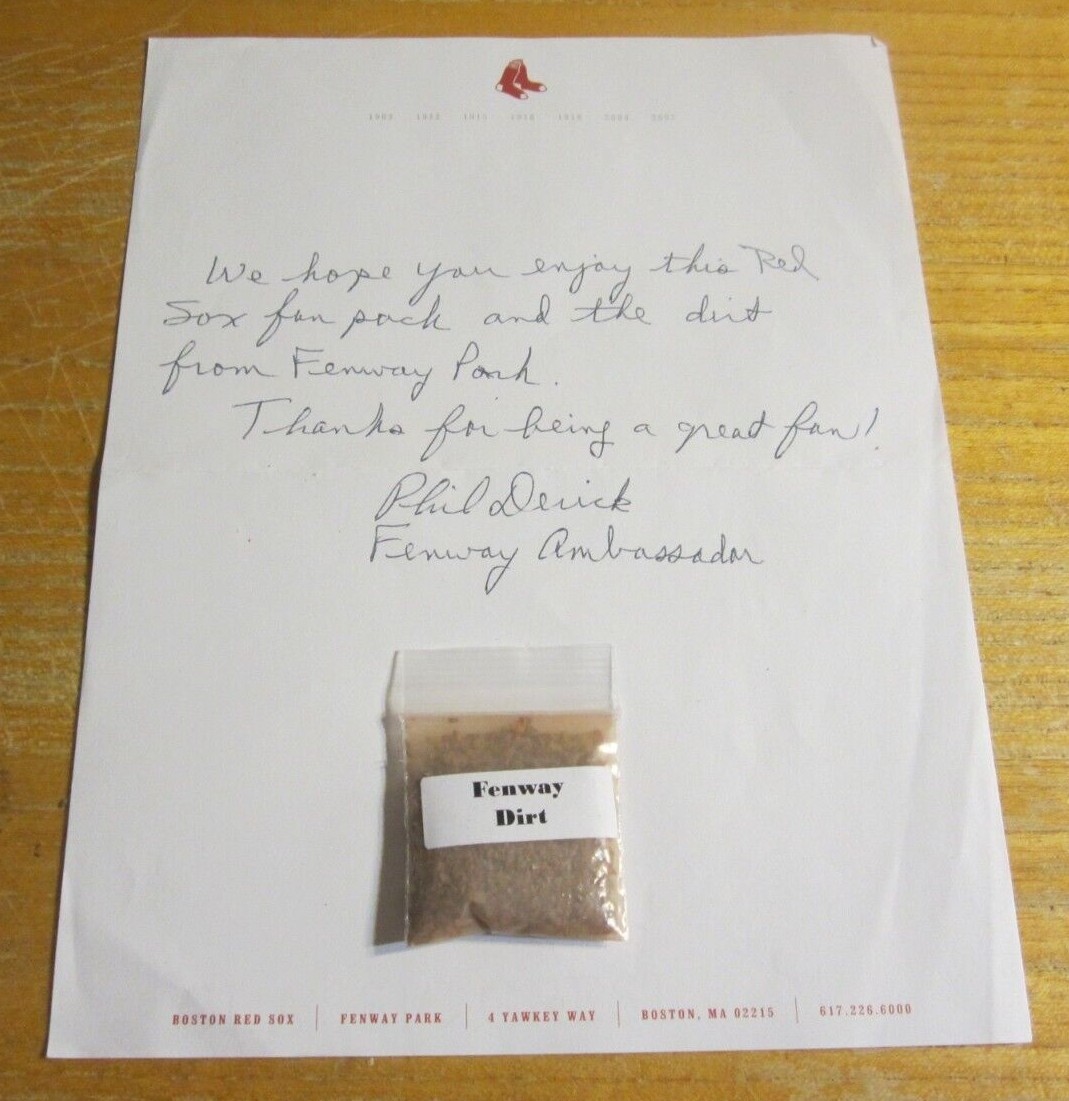 1903 1912 1915 1916 1918 2004 2007
We hope you enjoy this Red
Sox fan pack and the dirt
from Fenway Park.
Thanks for being a great fan!
Phil Derick
Fenway Ambassador
Fenway
Dirt
BOSTON RED SOX | FENWAY PARK | 4 YAWKEY WAY | BOSTON, MA 02215 | 617.226.6000